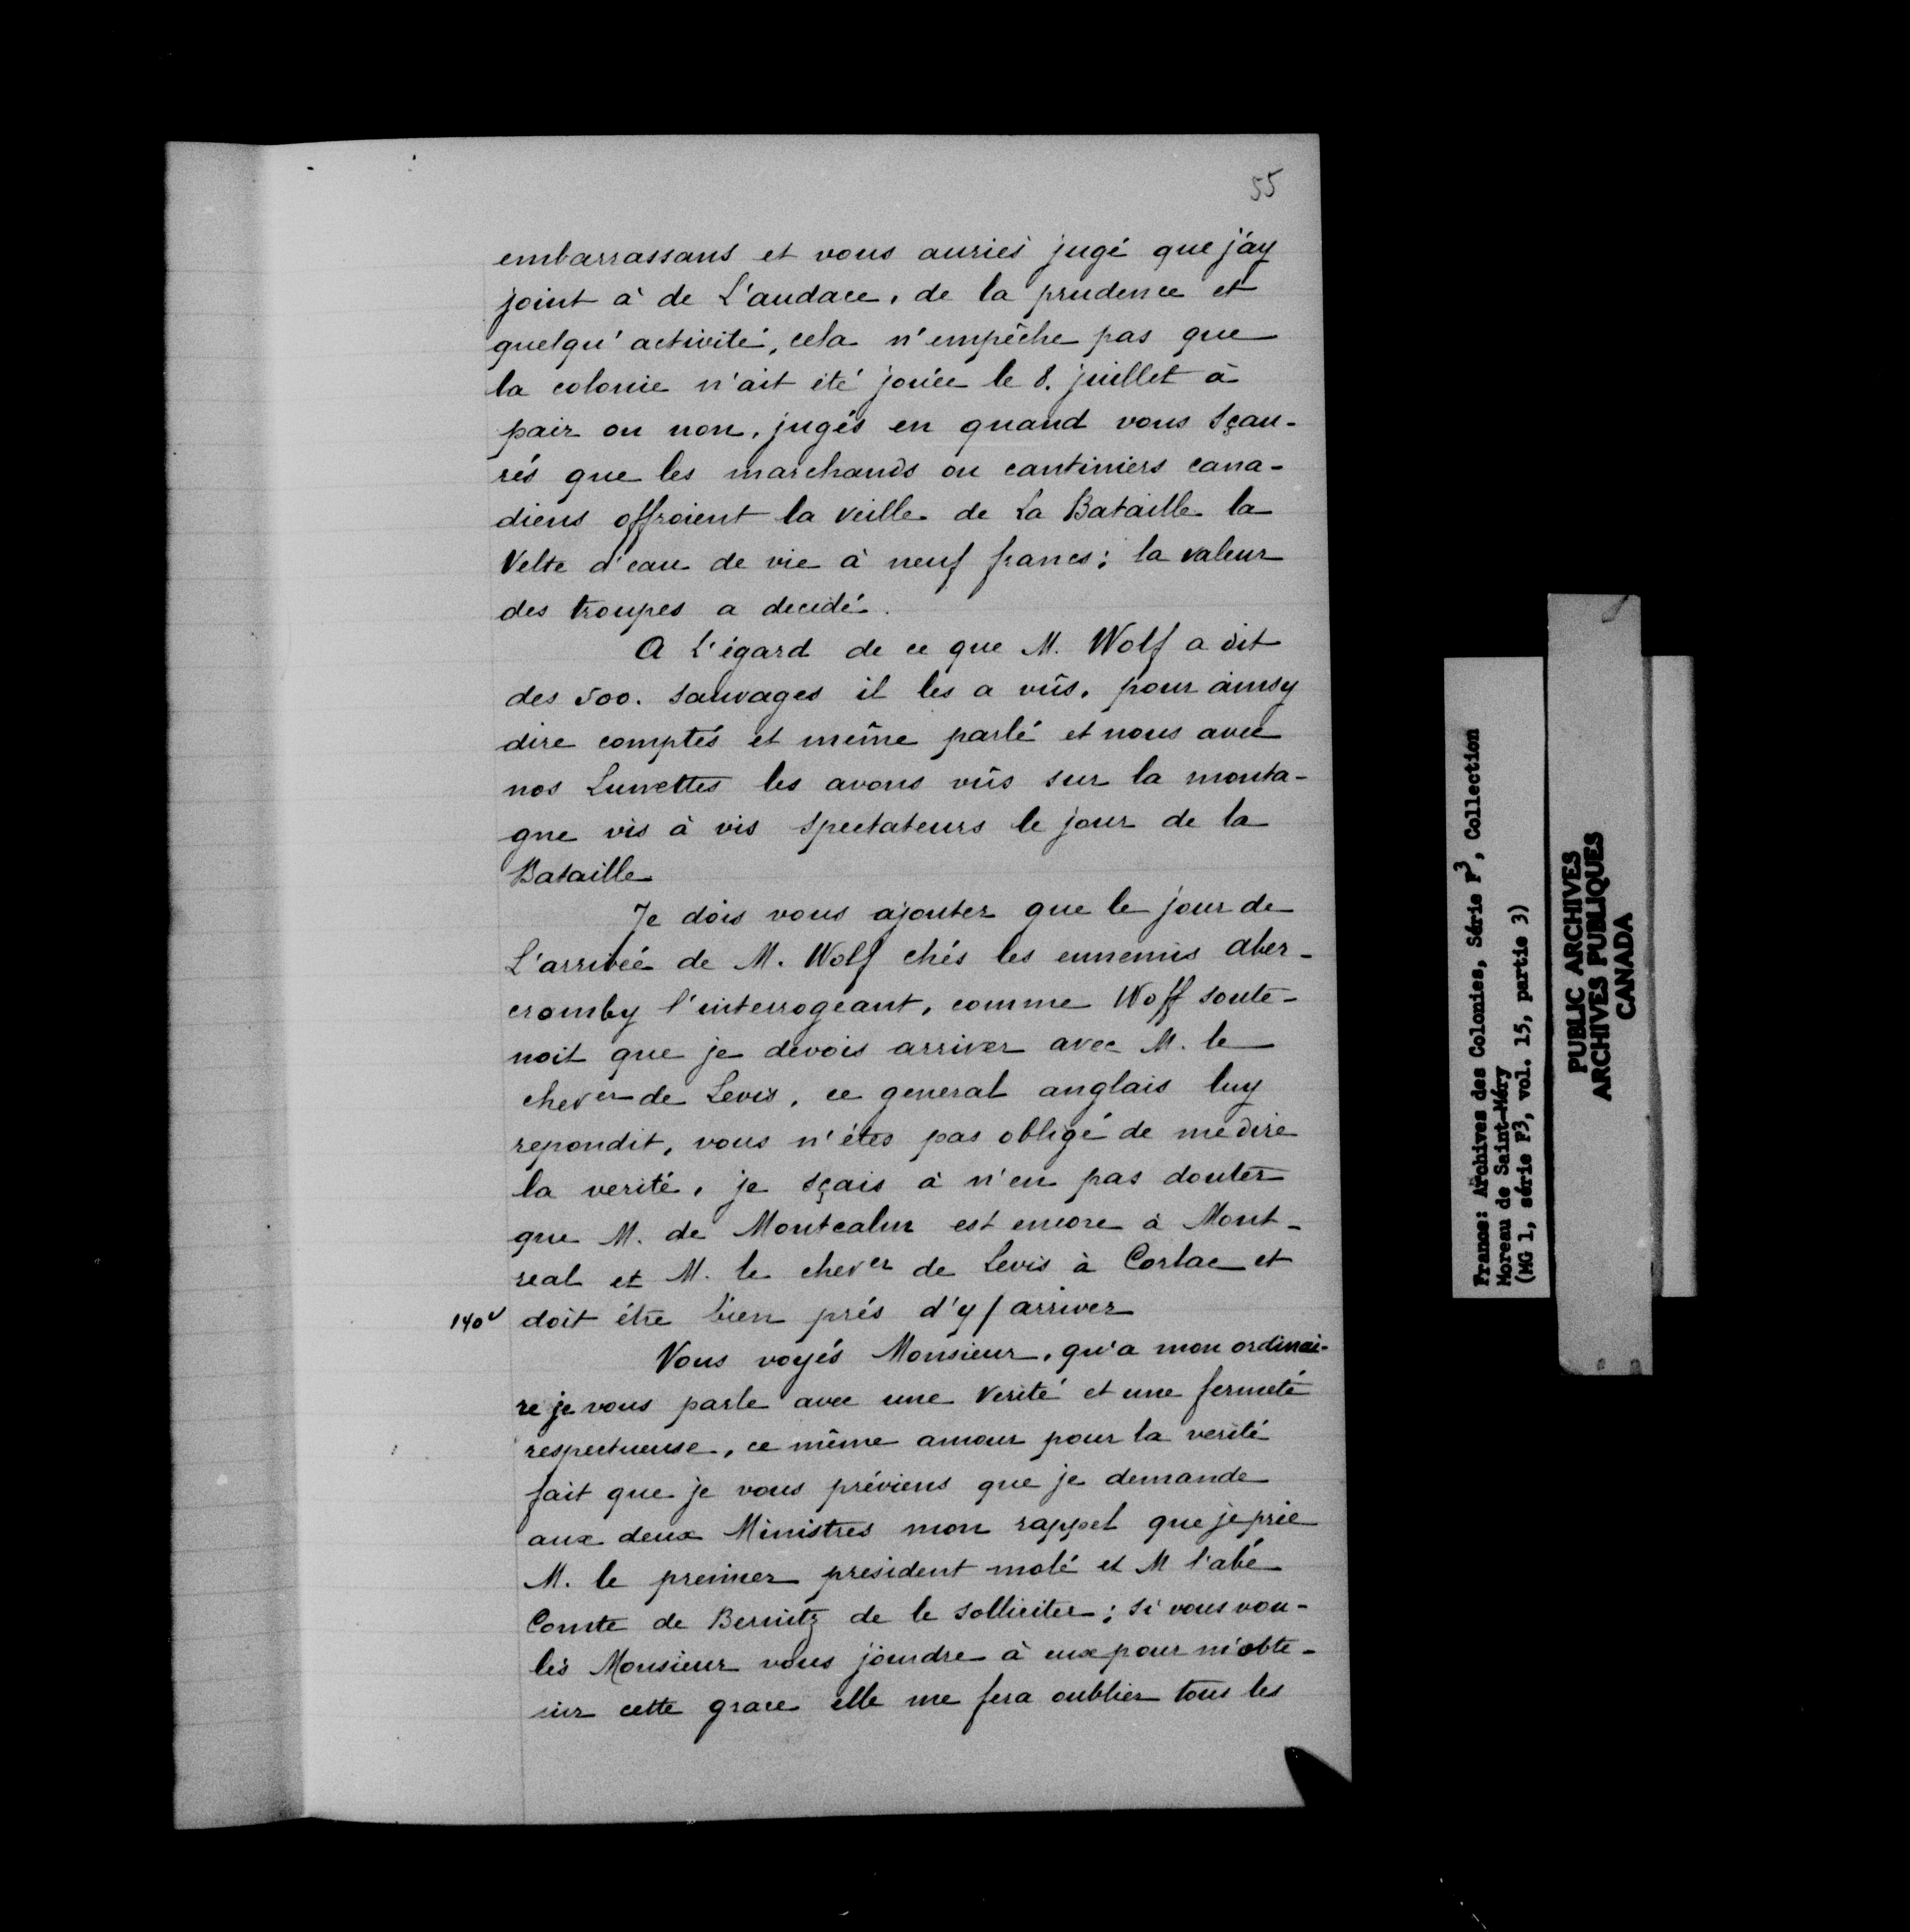 55
embarrassans et vous auriés jugé que j'ay
joint à de L'audace, de la prudence et
quelqu'activité, cela n'empêche pas que
la colonie n'ait été jouée le 8. juillet à
pair ou non, jugés en quand vous sçau-
rés que les marchands ou cantiniers cana-
diens offroient la veille de La Bataille la
Velte d'eau de vie à neuf francs; la valeur
des troupes a decidé.
A L'égard de ce que M. Wolf a dit
des 500. sauvages il les a vûs, pour ainsy
dire comptés et même parlé et nous avec
nos Lunettes les avons vûs sur la monta-
gne vis à vis spectateurs le jour de la
Bataille
Je dois vous ajouter que le jour de
L'arrivée de M. Wolf chés les ennemis aber-
cromby l'interrogeant, comme Woff soute-
noit que je devois arriver avec M. le
chever de Levis, ce general anglais luy
repondit, vous n'étes pas obligé de me dire
la verité, je sçais à n'en pas douter
que M. de Montcalm est encore à Mont-
real et M. le chever de Levis à Corlac et
140v doit étre bien prés d'y / arriver
Vous voyés Monsieur, qu'a mon ordinai-
re je vous parle avec une verité et une fermeté
respectueuse, ce même amour pour la verité
fait que je vous préviens que je demande
aux deux Ministres mon rappel que je prie
M. le premier president molé et M l'abé
Comte de Bernitz de le solliciter; si vous vou-
lés Monsieur vous joindre à eux pour m'obte-
nir cette grace elle me fera oublier tous les
France: Archives des Colonies, Série F3, Collection
Moreau de Saint-Méry
(MG 1, série F3, vol. 15, partie 3)
PUBLIC ARCHIVES
ARCHIVES PUBLIQUES
CANADA